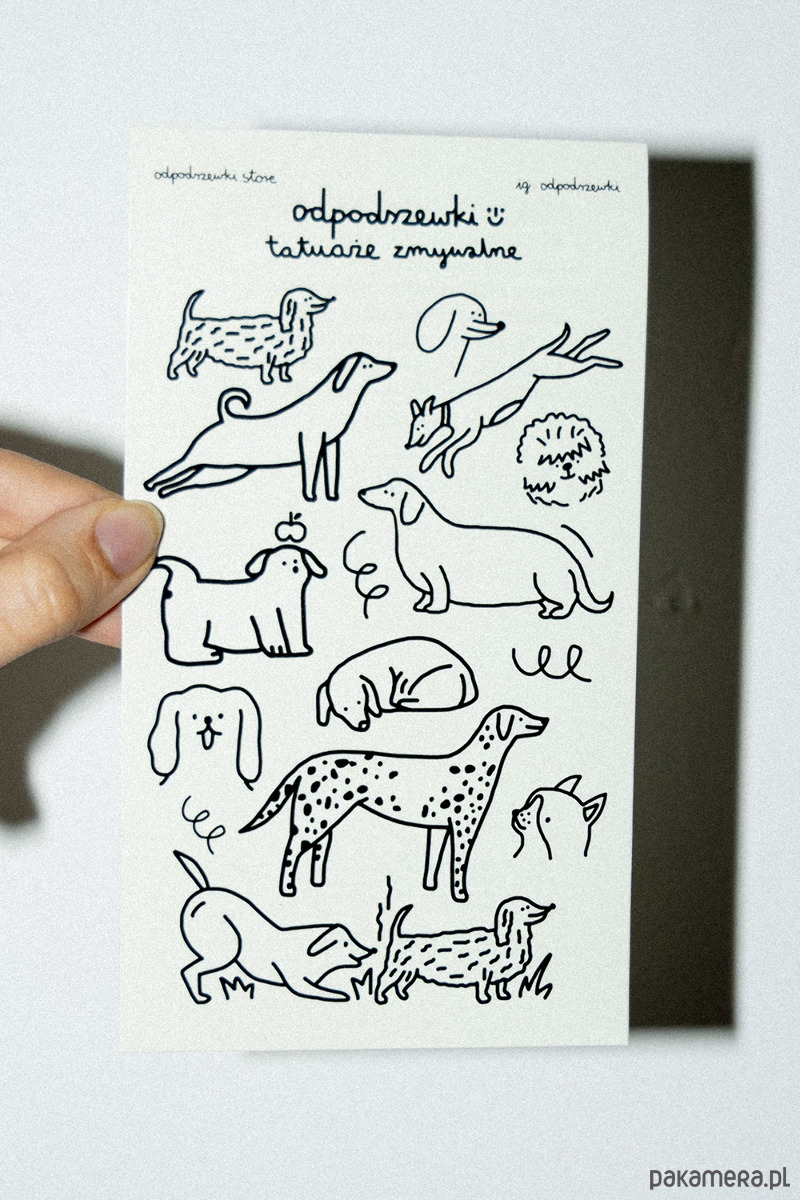 odpodszewki store
ig odpodszewki
odpodszewki
tatuaże zmywalne
pakamera.pl